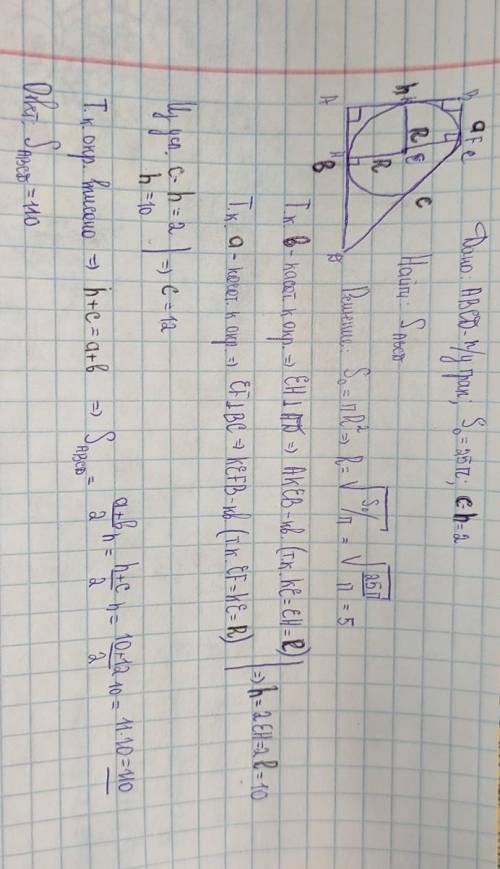 Дано: ABCD - п/у трап; S₀ = 25π; c-h=2
Найти: S ABCD
Решение: S₀ = πR² => R = √S₀/π = √25π/π = 5
Т.к. b - касат. к окр. => EH ⊥ AD => AKEB - кв. (т.к. KE = EH = R)
Т.к. a - касат. к окр. => EF ⊥ BC => KEFB - кв (т.к. EF = KE = R) | => h = 2EH = 2R = 10
Из усл. c - h = 2 | => c = 12
h = 10
Т.к. окр. вписано => h + c = a + b => S ABCD = a+b/2 h = h+c/2 h = 10+12/2 10 = 11·10 = 110
Ответ: S ABCD = 110
D a F C
h K R E C
R
A H B B